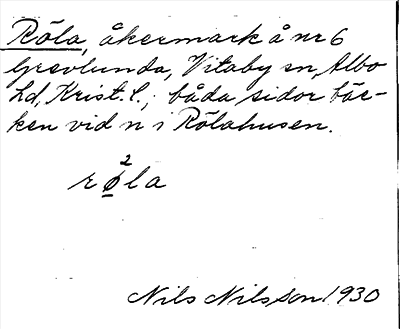 Röla, åkermark å nr 6
Grevlunda, Vitaby sn, Albo
hd, Krist. l.; båda sidor bäc-
ken vid n i Rölahusen.
2
rø̲la
Nils Nilsson 1930